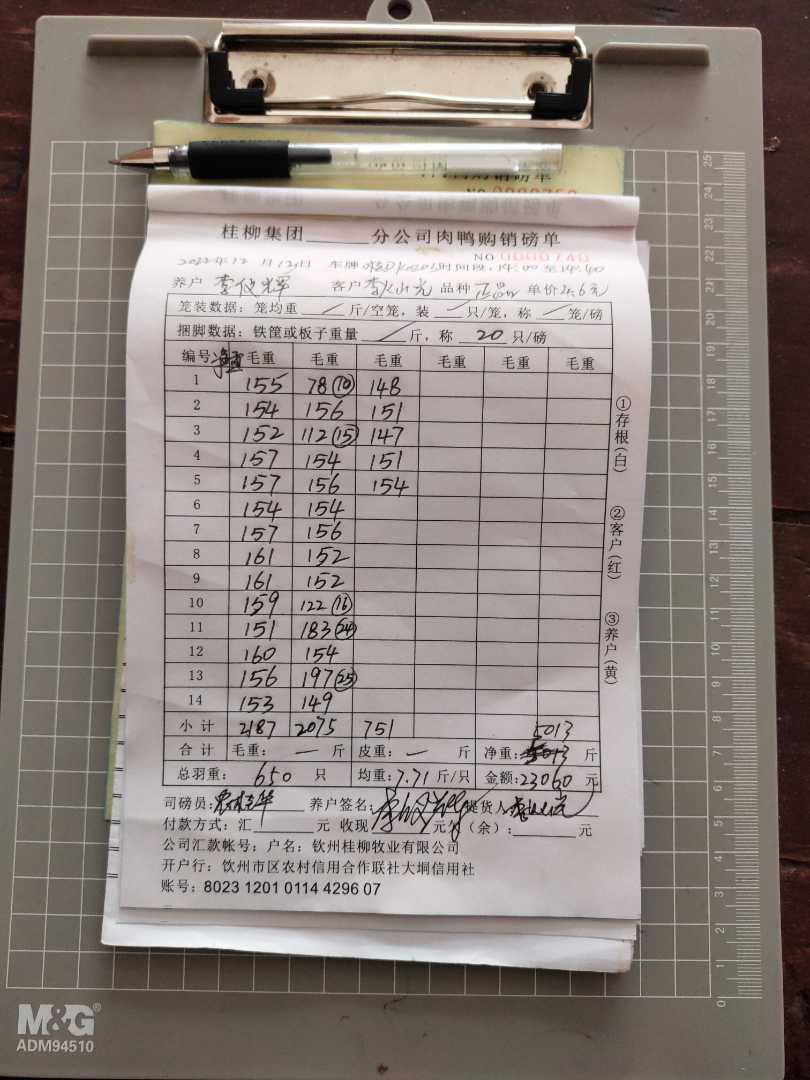 肉鸭购销磅单
NO 0000750
桂柳集团______分公司肉鸭购销磅单
NO 0000740
2022年12月12日 车牌 时间段:14:00至14:40
养户 李俊辉 客户 李火光 品种 正品 单价4.6元
笼装数据:笼均重 / 斤/空笼,装 / 只/笼,称 / 笼/磅
捆脚数据:铁筐或板子重量 / 斤,称 20 只/磅
编号 净重 毛重 毛重 毛重 毛重 毛重 毛重
1 155 78 (10) 148
2 154 156 151
3 152 112 (15) 147
4 157 154 151
5 157 156 154
6 154 154
7 157 156
8 161 152
9 161 152
10 159 122 (16)
11 151 183 (24)
12 160 154
13 156 197 (25)
14 153 149
小计 2187 2075 751 5013
合计 毛重: — 斤 皮重: — 斤 净重: 5013 斤
总羽重: 650 只 均重: 7.71 斤/只 金额: 23060 元
司磅员: 养户签名: 提货人:
付款方式:汇______元 收现 元 (余):______元
公司汇款帐号:户名:钦州桂柳牧业有限公司
开户行:钦州市区农村信用合作联社大垌信用社
账号:8023 1201 0114 4296 07
①存根(白)
②客户(红)
③养户(黄)
25
24
23
22
21
20
19
18
17
16
15
14
13
12
11
10
9
8
7
6
5
4
3
2
1
0
M&G®
ADM94510